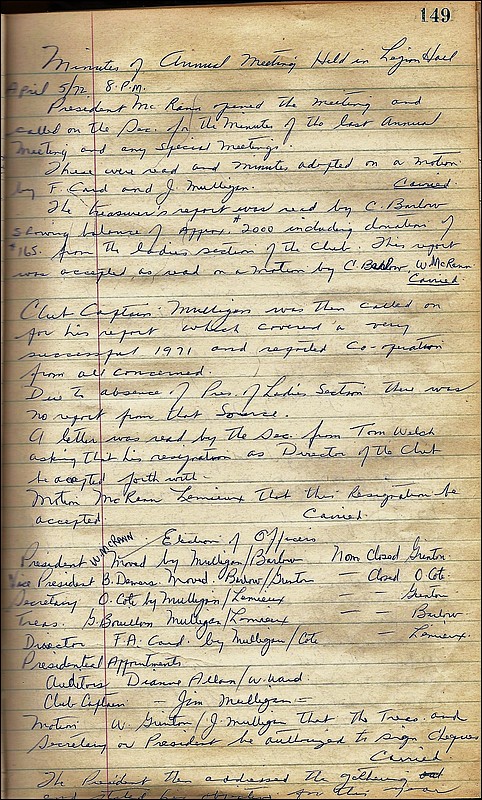 149
Minutes of Annual Meeting Held in Legion Hall
April 5/72 8 P.M.
President McRann opened the meeting and
called on the Sec. for the Minutes of the last Annual
Meeting and any Special Meetings.
These were read and minutes adopted on a motion
by F. Card and J. Mulligan. Carried
The treasurer's report was read by C. Barlow
showing balance of Approx $2000 including donation of
$165. from the ladies section of the Club. This report
was accepted as read on a motion by C. Barlow W. McRann
Carried
Club Captain Mulligan was then called on
for his report which covered a very
successful 1971 and reported Co-operation
from all concerned.
Due to absence of Pres. of Ladies Section there was
no report from that Source.
A letter was read by the Sec. from Tom Welsh
asking that his resignation as Director of the Club
be accepted forth with.
Motion McRann Lemieux that this Resignation be
accepted. Carried.
Election of Officers
President W. McRANN Moved by Mulligan/Barlow Nom Closed Grenton.
Vice President B. Demers. Moved. Barlow/Grenton — Closed O Cote
Secretary O. Cote by Mulligan/Lemieux — — Grenton
Treas. G. Bouillon Mulligan/Lemieux — — Barlow.
Director F.A. Card. by Mulligan/Cote — Lemieux.
Presidential Appointments
Auditors Dianne Allan/W. Ward.
Club Captain — Jim Mulligan —
Motion W. Grenton/J. Mulligan that the Treas. and
Secretary or President be authorized to sign cheques
Carried.
The President then addressed the gathering
and stated his objectives for this year